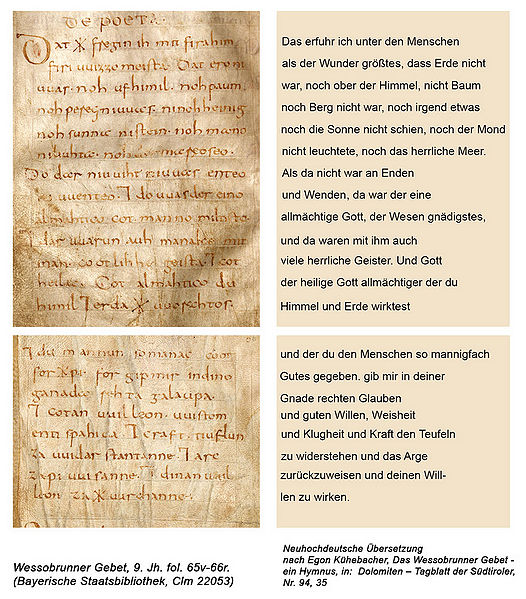 DE POETA
Dat * fregin ih mit firahim
firi uuizzo meista. Dat ero ni
uuas. noh ufhimil. noh paum
noh pereg ni uuas. ninohheinig
noh sunna ni stein. noh mano
ni liuhta. noh der mareo seo.
Do dar niuuiht ni uuas enteo
ni uuenteo. ⁊ do uuas der eino
almahtico cot manno miltisto.
⁊ dar uuarun auh manake mit
inan. cootlihhe geista. ⁊ cot
heilac. Cot almahtico du
himil ⁊ erda * uuorahtos.
⁊ du mannun so manac coot
for * pi. for gip mir indino
ganada rehta galaupa.
⁊ cotan uuilleon. uuistom
enti spahida. ⁊ craft. tiuflun
za uuidar stantanne. ⁊ arc
za pi uuisanne. ⁊ dinan uuil
leon za * uurchanne.
Das erfuhr ich unter den Menschen
als der Wunder größtes, dass Erde nicht
war, noch ober der Himmel, nicht Baum
noch Berg nicht war, noch irgend etwas
noch die Sonne nicht schien, noch der Mond
nicht leuchtete, noch das herrliche Meer.
Als da nicht war an Enden
und Wenden, da war der eine
allmächtige Gott, der Wesen gnädigstes,
und da waren mit ihm auch
viele herrliche Geister. Und Gott
der heilige Gott allmächtiger der du
Himmel und Erde wirktest
und der du den Menschen so mannigfach
Gutes gegeben. gib mir in deiner
Gnade rechten Glauben
und guten Willen, Weisheit
und Klugheit und Kraft den Teufeln
zu widerstehen und das Arge
zurückzuweisen und deinen Will-
len zu wirken.
Wessobrunner Gebet, 9. Jh. fol. 65v-66r.
(Bayerische Staatsbibliothek, Clm 22053)
Neuhochdeutsche Übersetzung
nach Egon Kühebacher, Das Wessobrunner Gebet -
ein Hymnus, in: Dolomiten – Tagblatt der Südtiroler,
Nr. 94, 35